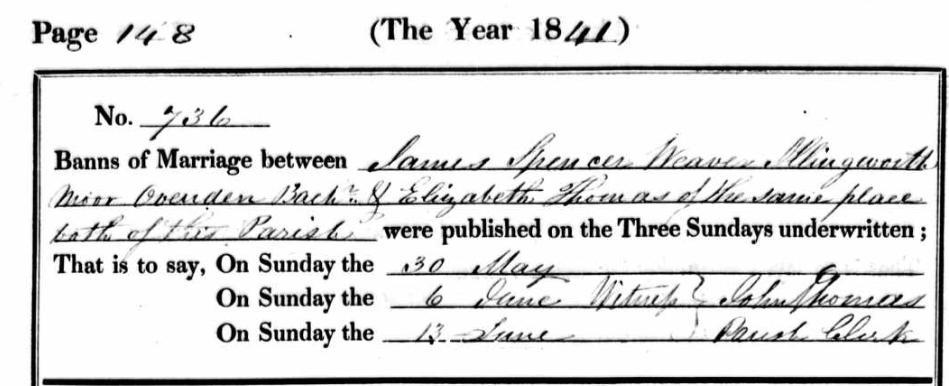 Page 148 (The Year 1841)
No. 736
Banns of Marriage between James Spencer Weaver Illingworth
Moor Ovenden Bachr. & Elizabeth Thomas of the same place
both of this Parish were published on the Three Sundays underwritten;
That is to say, On Sunday the 30 May
On Sunday the 6 June Witness } John Thomas
On Sunday the 13 June Parish Clerk